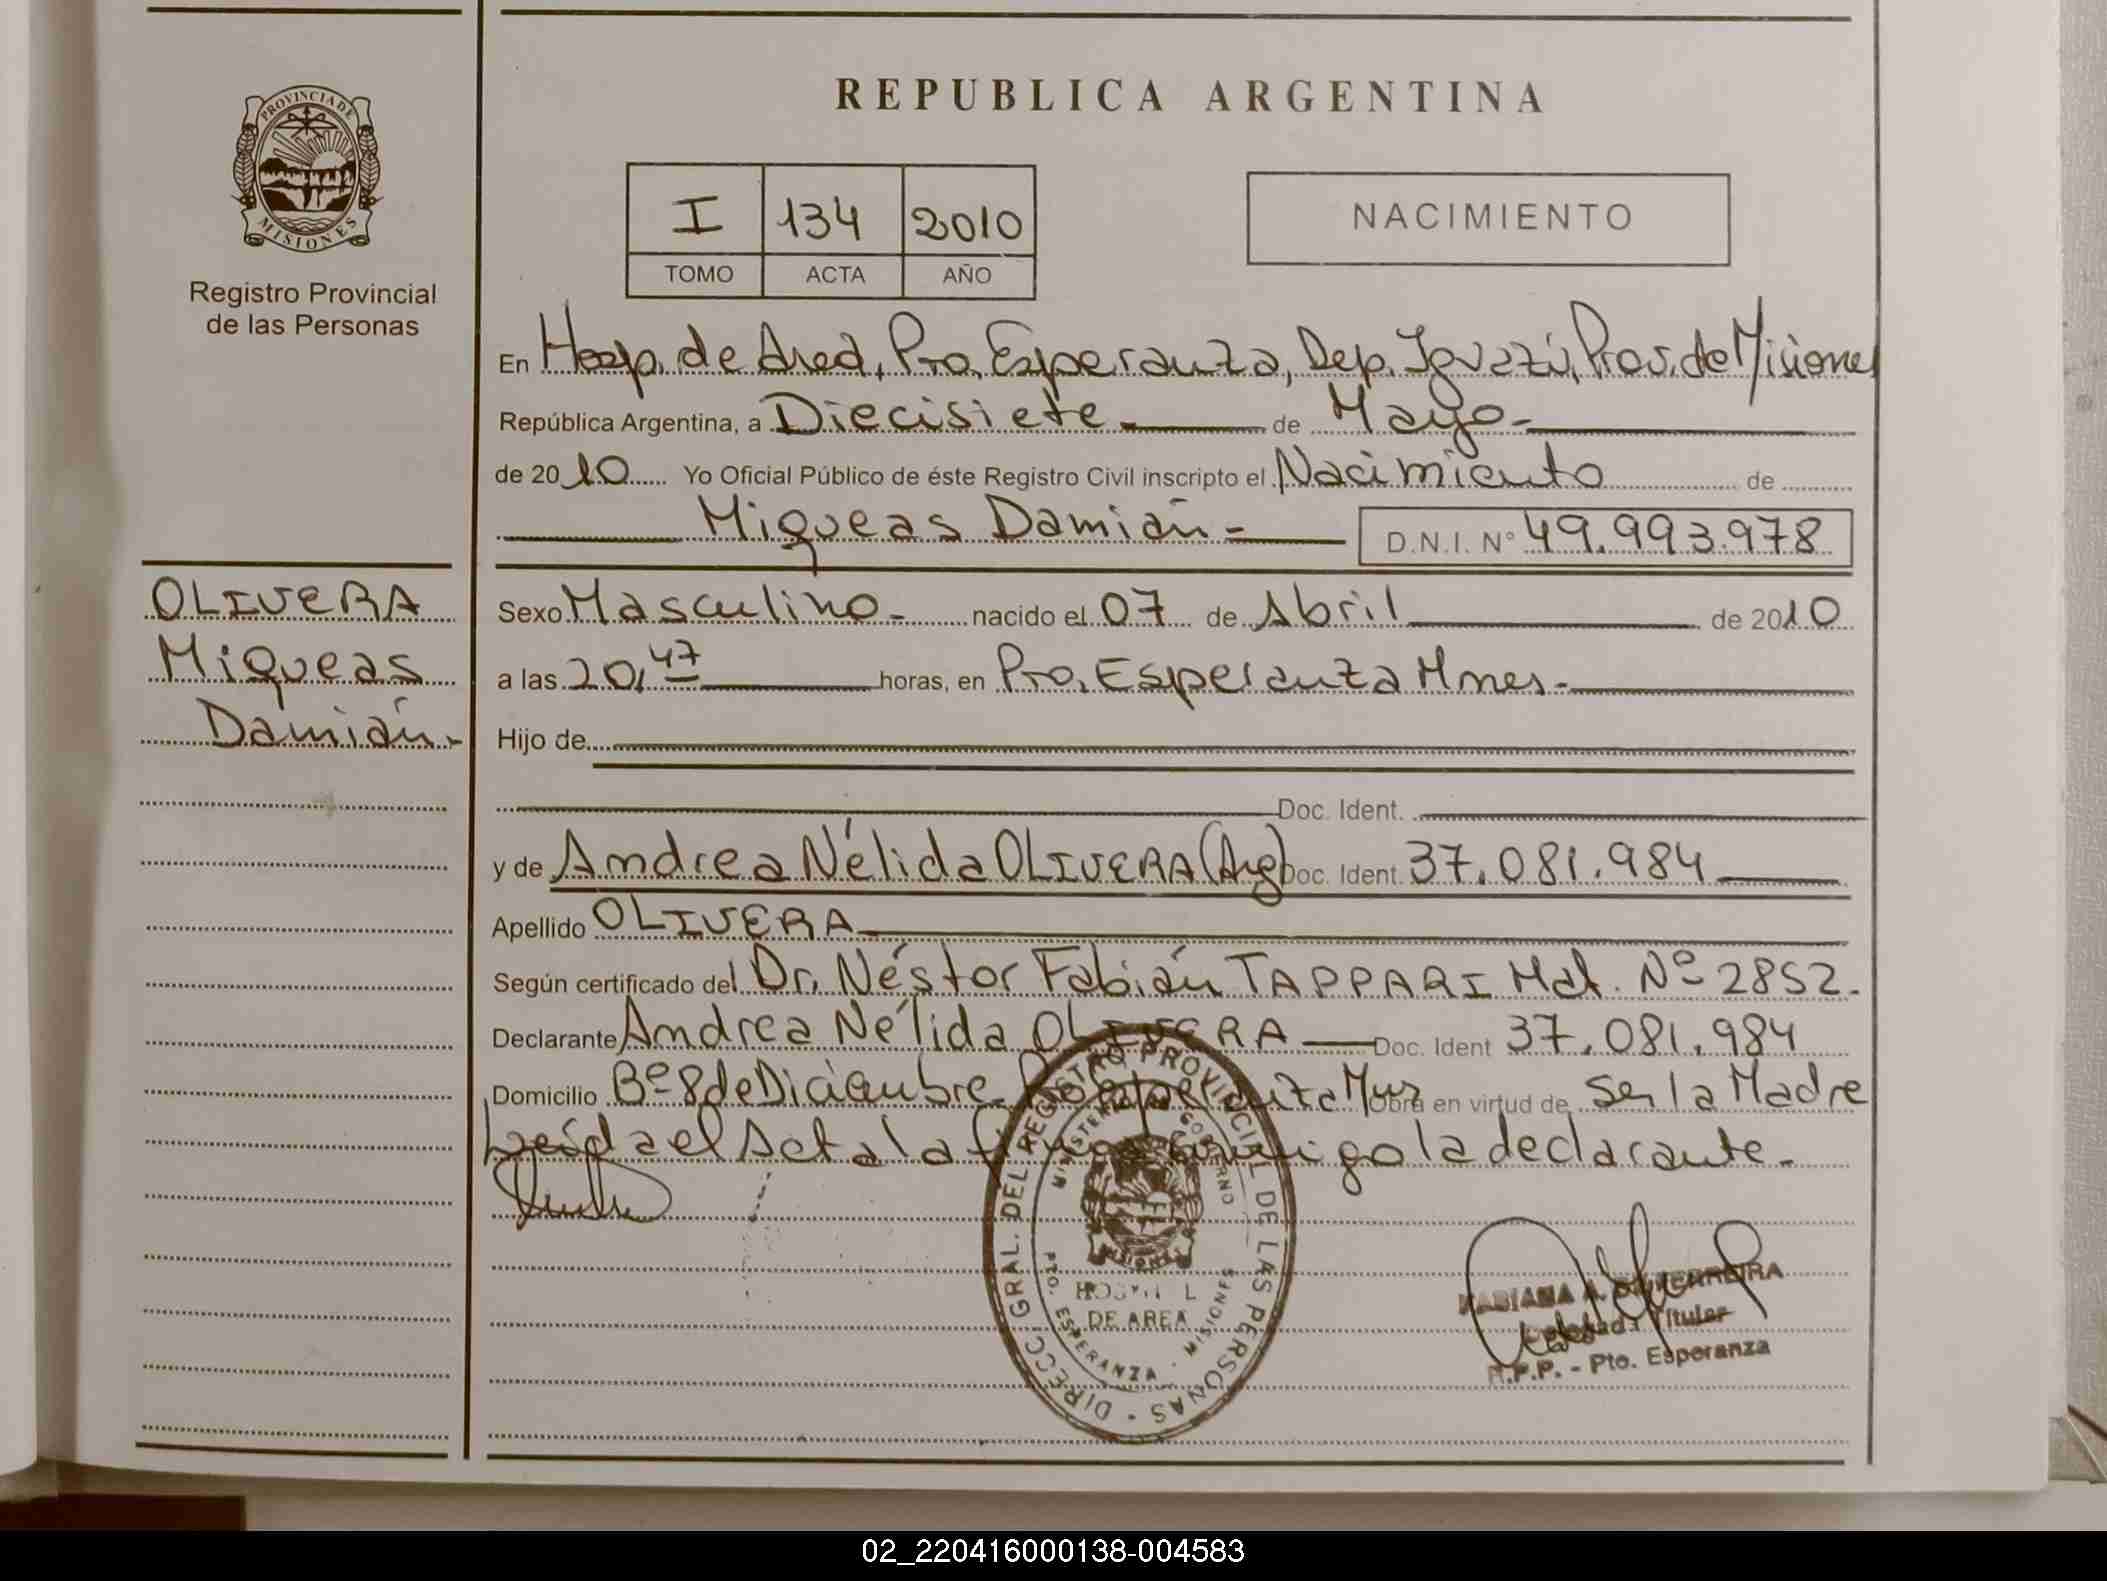 REPUBLICA ARGENTINA
PROVINCIA DE
MISIONES
Registro Provincial
de las Personas
I 134 2010
TOMO ACTA AÑO
NACIMIENTO
En Hosp. de Area, Pto. Esperanza, Dep. Iguazú, Prov. de Misiones
República Argentina, a Diecisiete de Mayo
de 2010 Yo Oficial Público de éste Registro Civil inscripto el Nacimiento de
Miqueas Damián D.N.I. N° 49.993.978
OLIVERA
Miqueas
Damián
Sexo Masculino nacido el 07 de Abril de 2010
a las 20,47 horas, en Pto. Esperanza Mnes.
Hijo de
Doc. Ident.
y de Andrea Nélida OLIVERA (Arg) Doc. Ident. 37.081.984
Apellido OLIVERA
Según certificado del Dr. Néstor Fabián TAPPARI Mat. Nº 2852.
Declarante Andrea Nélida OLIVERA Doc. Ident 37.081.984
Domicilio Bº 8 de Diciembre Obra en virtud de ser la Madre
Leída el Acta la firma conmigo la declarante.
DIRECC GRAL. DEL REGISTRO PROVINCIAL DE LAS PERSONAS
MINISTERIO GOBIERNO
MISIONES
HOSPITAL
DE AREA
PTO. ESPERANZA - MISIONES
FABIANA A.
Delegada Titular
R.P.P. - Pto. Esperanza
02_220416000138-004583